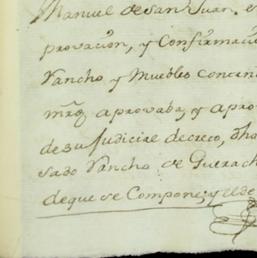 Manuel de San Juan. e
provacion, y Confirmacio
Rancho y Muebles conten
aprovaba, y apro
de su Judicial decreto, Dho
sado Rancho de Guerach
de que se Compone; y el de